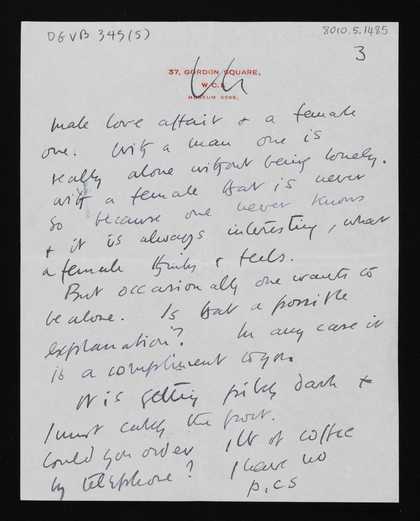 DGVB 345(5)
8010.5.1485
3
37, GORDON SQUARE,
W.C.1.
MUSEUM
male love affair & a female
one. With a man one is
really alone without being lonely.
with a female that is never
so because one never knows
& it is always interesting, what
a female thinks & feels.
But occasionally one wants to
be alone. Is that a possible
explanation? In any case it
is a compliment to you.
It is getting pitch dark &
I must catch the post.
Could you order 1 lb of coffee
by telephone? I have no
p.c.s